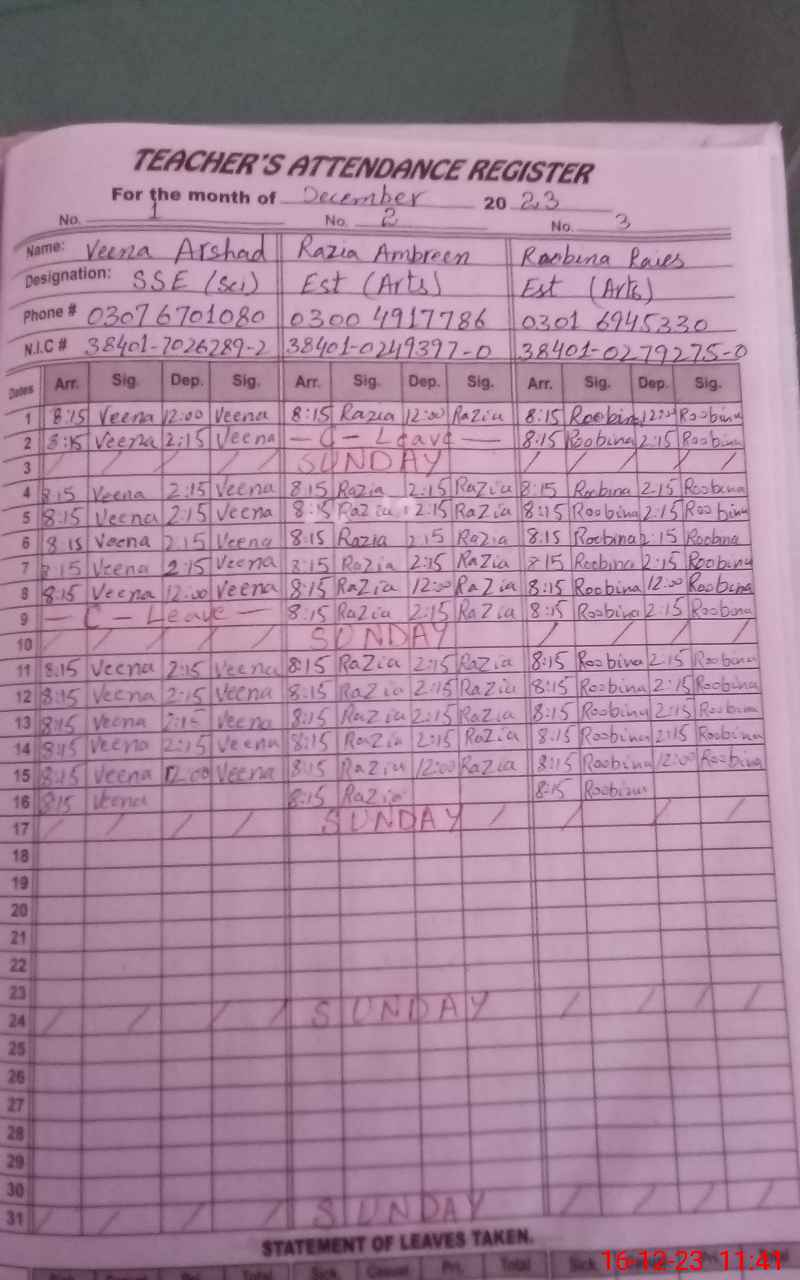 TEACHER'S ATTENDANCE REGISTER
For the month of December 20 23
No. 1 No. 2 No. 3
Name: Veena Arshad Razia Ambreen Roobina Raies
Designation: SSE (Sci) Est (Arts) Est (Arts)
Phone # 0307 6701080 0300 4917786 0301 6945330
N.I.C # 38401-7026289-2 38401-0249397-0 38401-0279275-0
Dates Arr. Sig. Dep. Sig. Arr. Sig. Dep. Sig. Arr. Sig. Dep. Sig.
1 8:15 Veena 12:00 Veena 8:15 Razia 12:00 Razia 8:15 Roobina 12:00 Roobina
2 8:15 Veena 2:15 Veena — C — Leave — 8:15 Roobina 2:15 Roobina
3 / / / / SUNDAY / / / /
4 8:15 Veena 2:15 Veena 8:15 Razia 2:15 RaZia 8:15 Roobina 2:15 Roobina
5 8:15 Veena 2:15 Veena 8:15 Razia 2:15 RaZia 8:15 Roobina 2:15 Roobina
6 8:15 Veena 2:15 Veena 8:15 Razia 2:15 Razia 8:15 Roobina 2:15 Roobina
7 8:15 Veena 2:15 Veena 8:15 RaZia 2:15 RaZia 8:15 Roobina 2:15 Roobina
8 8:15 Veena 12:00 Veena 8:15 RaZia 12:00 RaZia 8:15 Roobina 12:00 Roobina
9 — C — Leave — 8:15 RaZia 2:15 RaZia 8:15 Roobina 2:15 Roobina
10 / / / / SUNDAY / / / /
11 8:15 Veena 2:15 Veena 8:15 RaZia 2:15 RaZia 8:15 Roobina 2:15 Roobina
12 8:15 Veena 2:15 Veena 8:15 RaZia 2:15 RaZia 8:15 Roobina 2:15 Roobina
13 8:15 Veena 2:15 Veena 8:15 RaZia 2:15 RaZia 8:15 Roobina 2:15 Roobina
14 8:15 Veena 2:15 Veena 8:15 RaZia 2:15 RaZia 8:15 Roobina 2:15 Roobina
15 8:15 Veena 12:00 Veena 8:15 RaZia 12:00 RaZia 8:15 Roobina 12:00 Roobina
16 8:15 Veena 8:15 RaZia 8:15 Roobina
17 / / / / SUNDAY / / / /
18
19
20
21
22
23
24 / / / / SUNDAY / / / /
25
26
27
28
29
30
31 / / / / SUNDAY / / / /
STATEMENT OF LEAVES TAKEN.
Total Sick Casual Pri. Total Sick
16-12-23 11:41